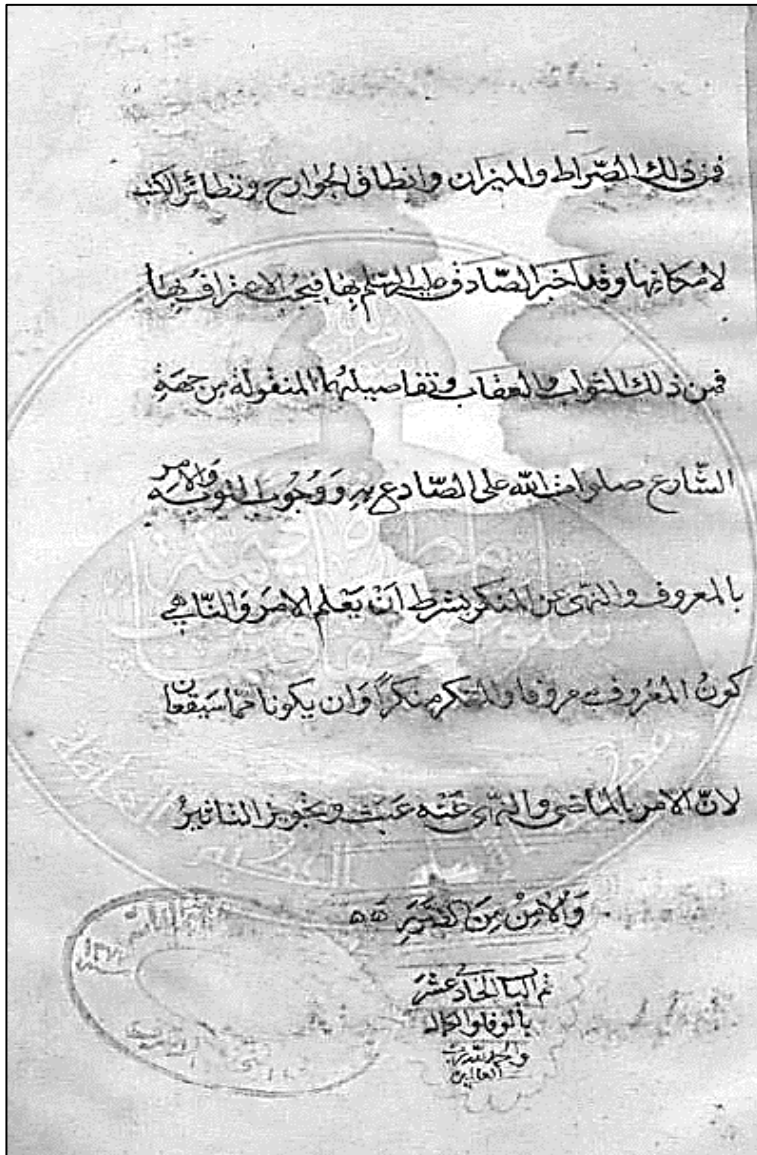 فمن ذلك الصّراط والميزان وانطاق الجوارح وتطائر الكتب
لامكانها وقد اخبر الصّادق عليه السّلم بها فيجب الاعتراف بها
فمن ذلك الثواب والعقاب وتفاصيلهما المنقولة من جهة
الشّارع صلوات الله على الصّادع به وَوُجُوب التوبه والامر
بالمعروف والنهى عن المنكر بشرط اَنْ يَعْلم الامرَ وَالنّاهى
كونُ المعْرُوف معروفا والمنكر منكرًا وَان يكونا ممّا سَيَقعان
لانّ الامر بالماضى والنهى عَنْه عَبث وتجويز التاثيرُ
وَالامْنُ مِنَ الضّرَرِ
تم الباب الحاد عشر
بالوفا والكمال
والحمد لله رب
العالمين